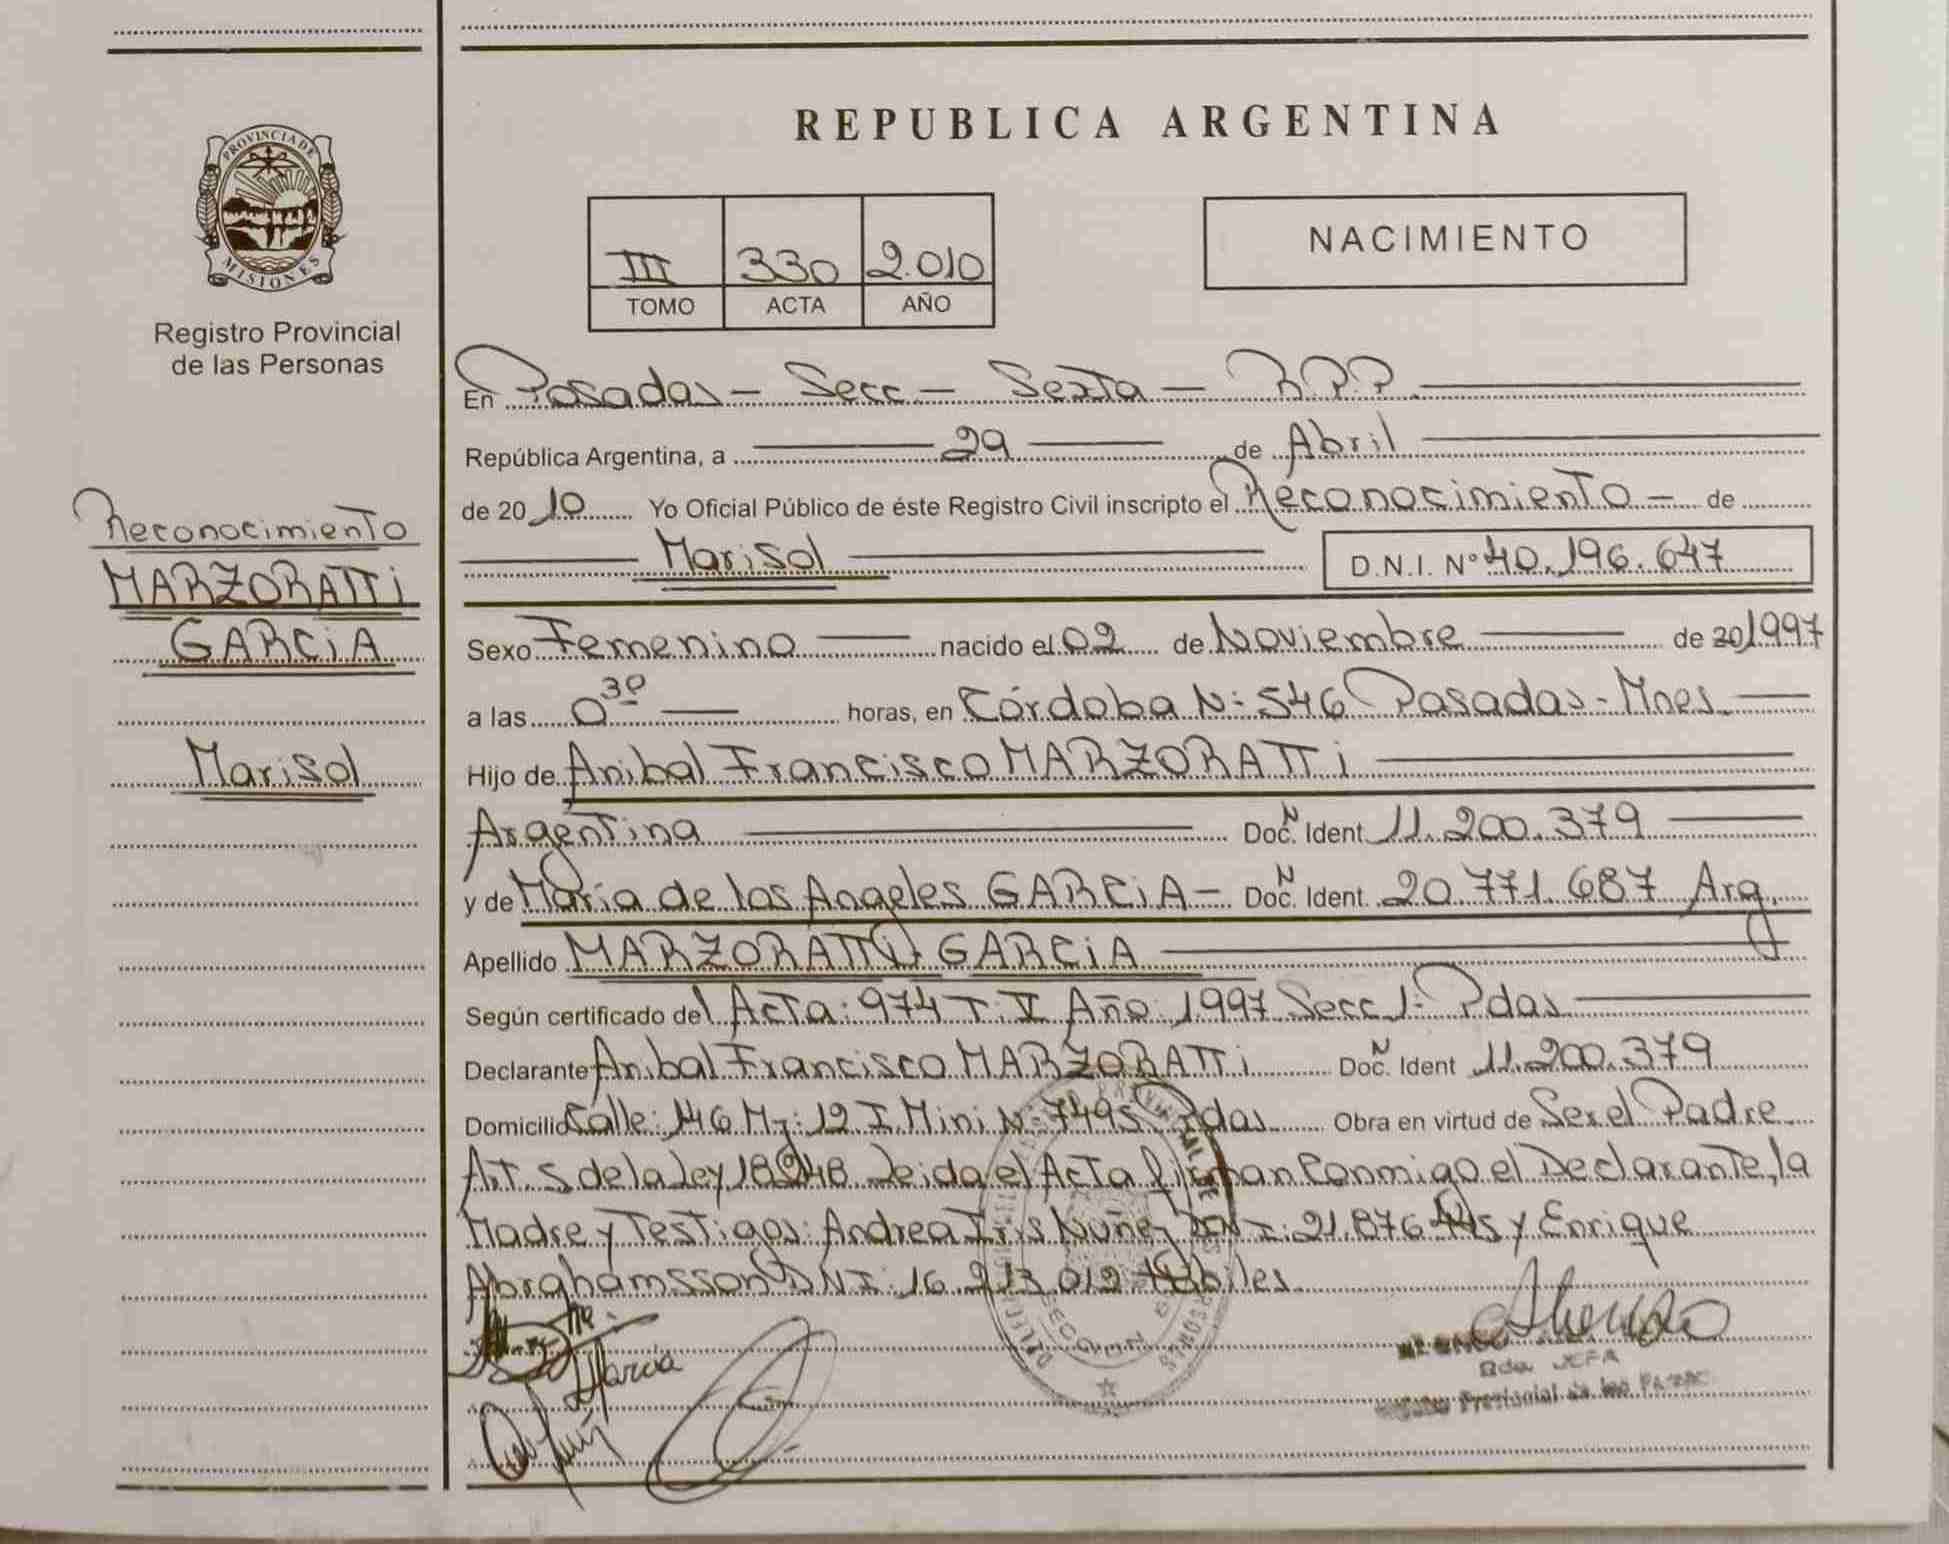 PROVINCIA DE
MISIONES
Registro Provincial
de las Personas
Reconocimiento
MARZORATTi
GARCiA
Marisol
REPUBLICA ARGENTINA
III 330 2.010
TOMO ACTA AÑO
NACIMIENTO
En Posadas – Secc – Sexta – R.P.P.
República Argentina, a 29 de Abril
de 20 10 Yo Oficial Público de éste Registro Civil inscripto el Reconocimiento – de
Marisol D.N.I. N° 40.196.647
Sexo Femenino nacido el 02 de Noviembre de 20 1997
a las 0 30 horas, en Córdoba N: 546 Posadas - Mnes.
Hijo de Anibal Francisco MARZORATTi
Argentina Doc. N Ident 11.200.379
y de Maria de los Angeles GARCiA – Doc. N Ident. 20.771.687 Arg.
Apellido MARZORATTi GARCiA
Según certificado del Acta: 974 T: V Año: 1997 Secc 1- Pdas
Declarante Anibal Francisco MARZORATTi Doc. N Ident 11.200.379
Domicilio Calle: 146 Mz: 12 I. Mini N: 7495 Pdas Obra en virtud de Ser el Padre
Art. 5 de la Ley 18248 Leida el Acta firman Conmigo el Declarante, la
Madre y Testigos: Andrea Iris Nuñez DNI: 21.876 y Enrique
Abrghamsson DNI: 16.213.012 Hábiles
Garcia
JEFA
Provincial de las